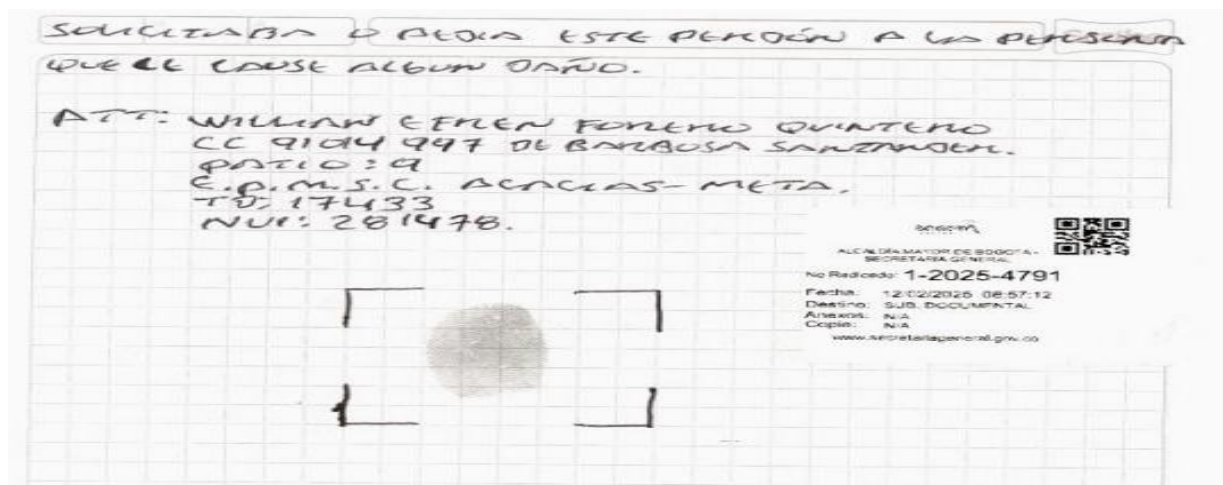 SOLICITABA O PEDIA ESTE PERDÓN A LA PERSONA
QUE LE CAUSE ALGUN DAÑO.
ATT: WILLIAN EFREN FORERO QUINTERO
CC 91014997 DE BARBOSA SANTANDER.
PATIO: 9
E.P.M.S.C. ACACIAS-META.
TD: 17433
NUI: 281478.
ALCALDÍA MAYOR DE BOGOTA -
SECRETARIA GENERAL
No Radicado: 1-2025-4791
Fecha: 12/02/2025 08:57:12
Destino: SUB. DOCUMENTAL
Anexos: N/A
Copia: N/A
www.secretariageneral.gov.co